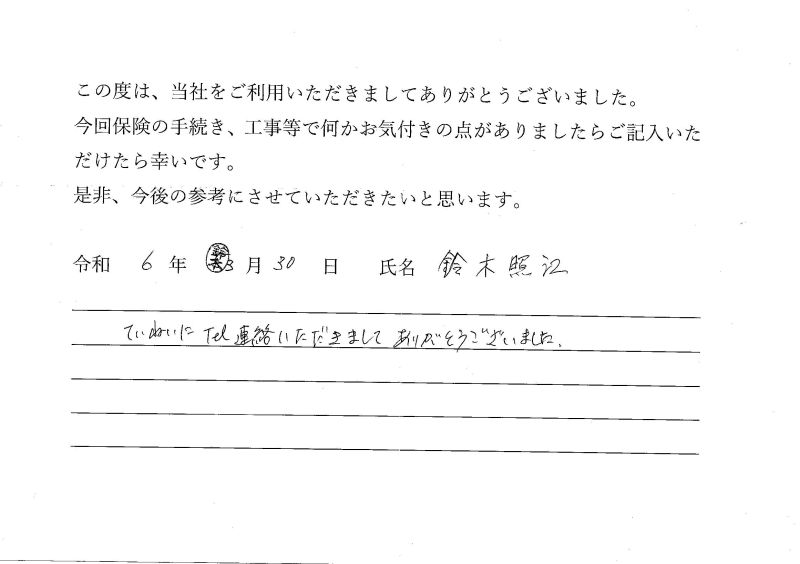 この度は、当社をご利用いただきましてありがとうございました。
今回保険の手続き、工事等で何かお気付きの点がありましたらご記入いた
だけたら幸いです。
是非、今後の参考にさせていただきたいと思います。
令和 6 年 3 月 30 日 氏名 鈴木照江
ていねいに Tel 連絡いただきまして ありがとうございました。